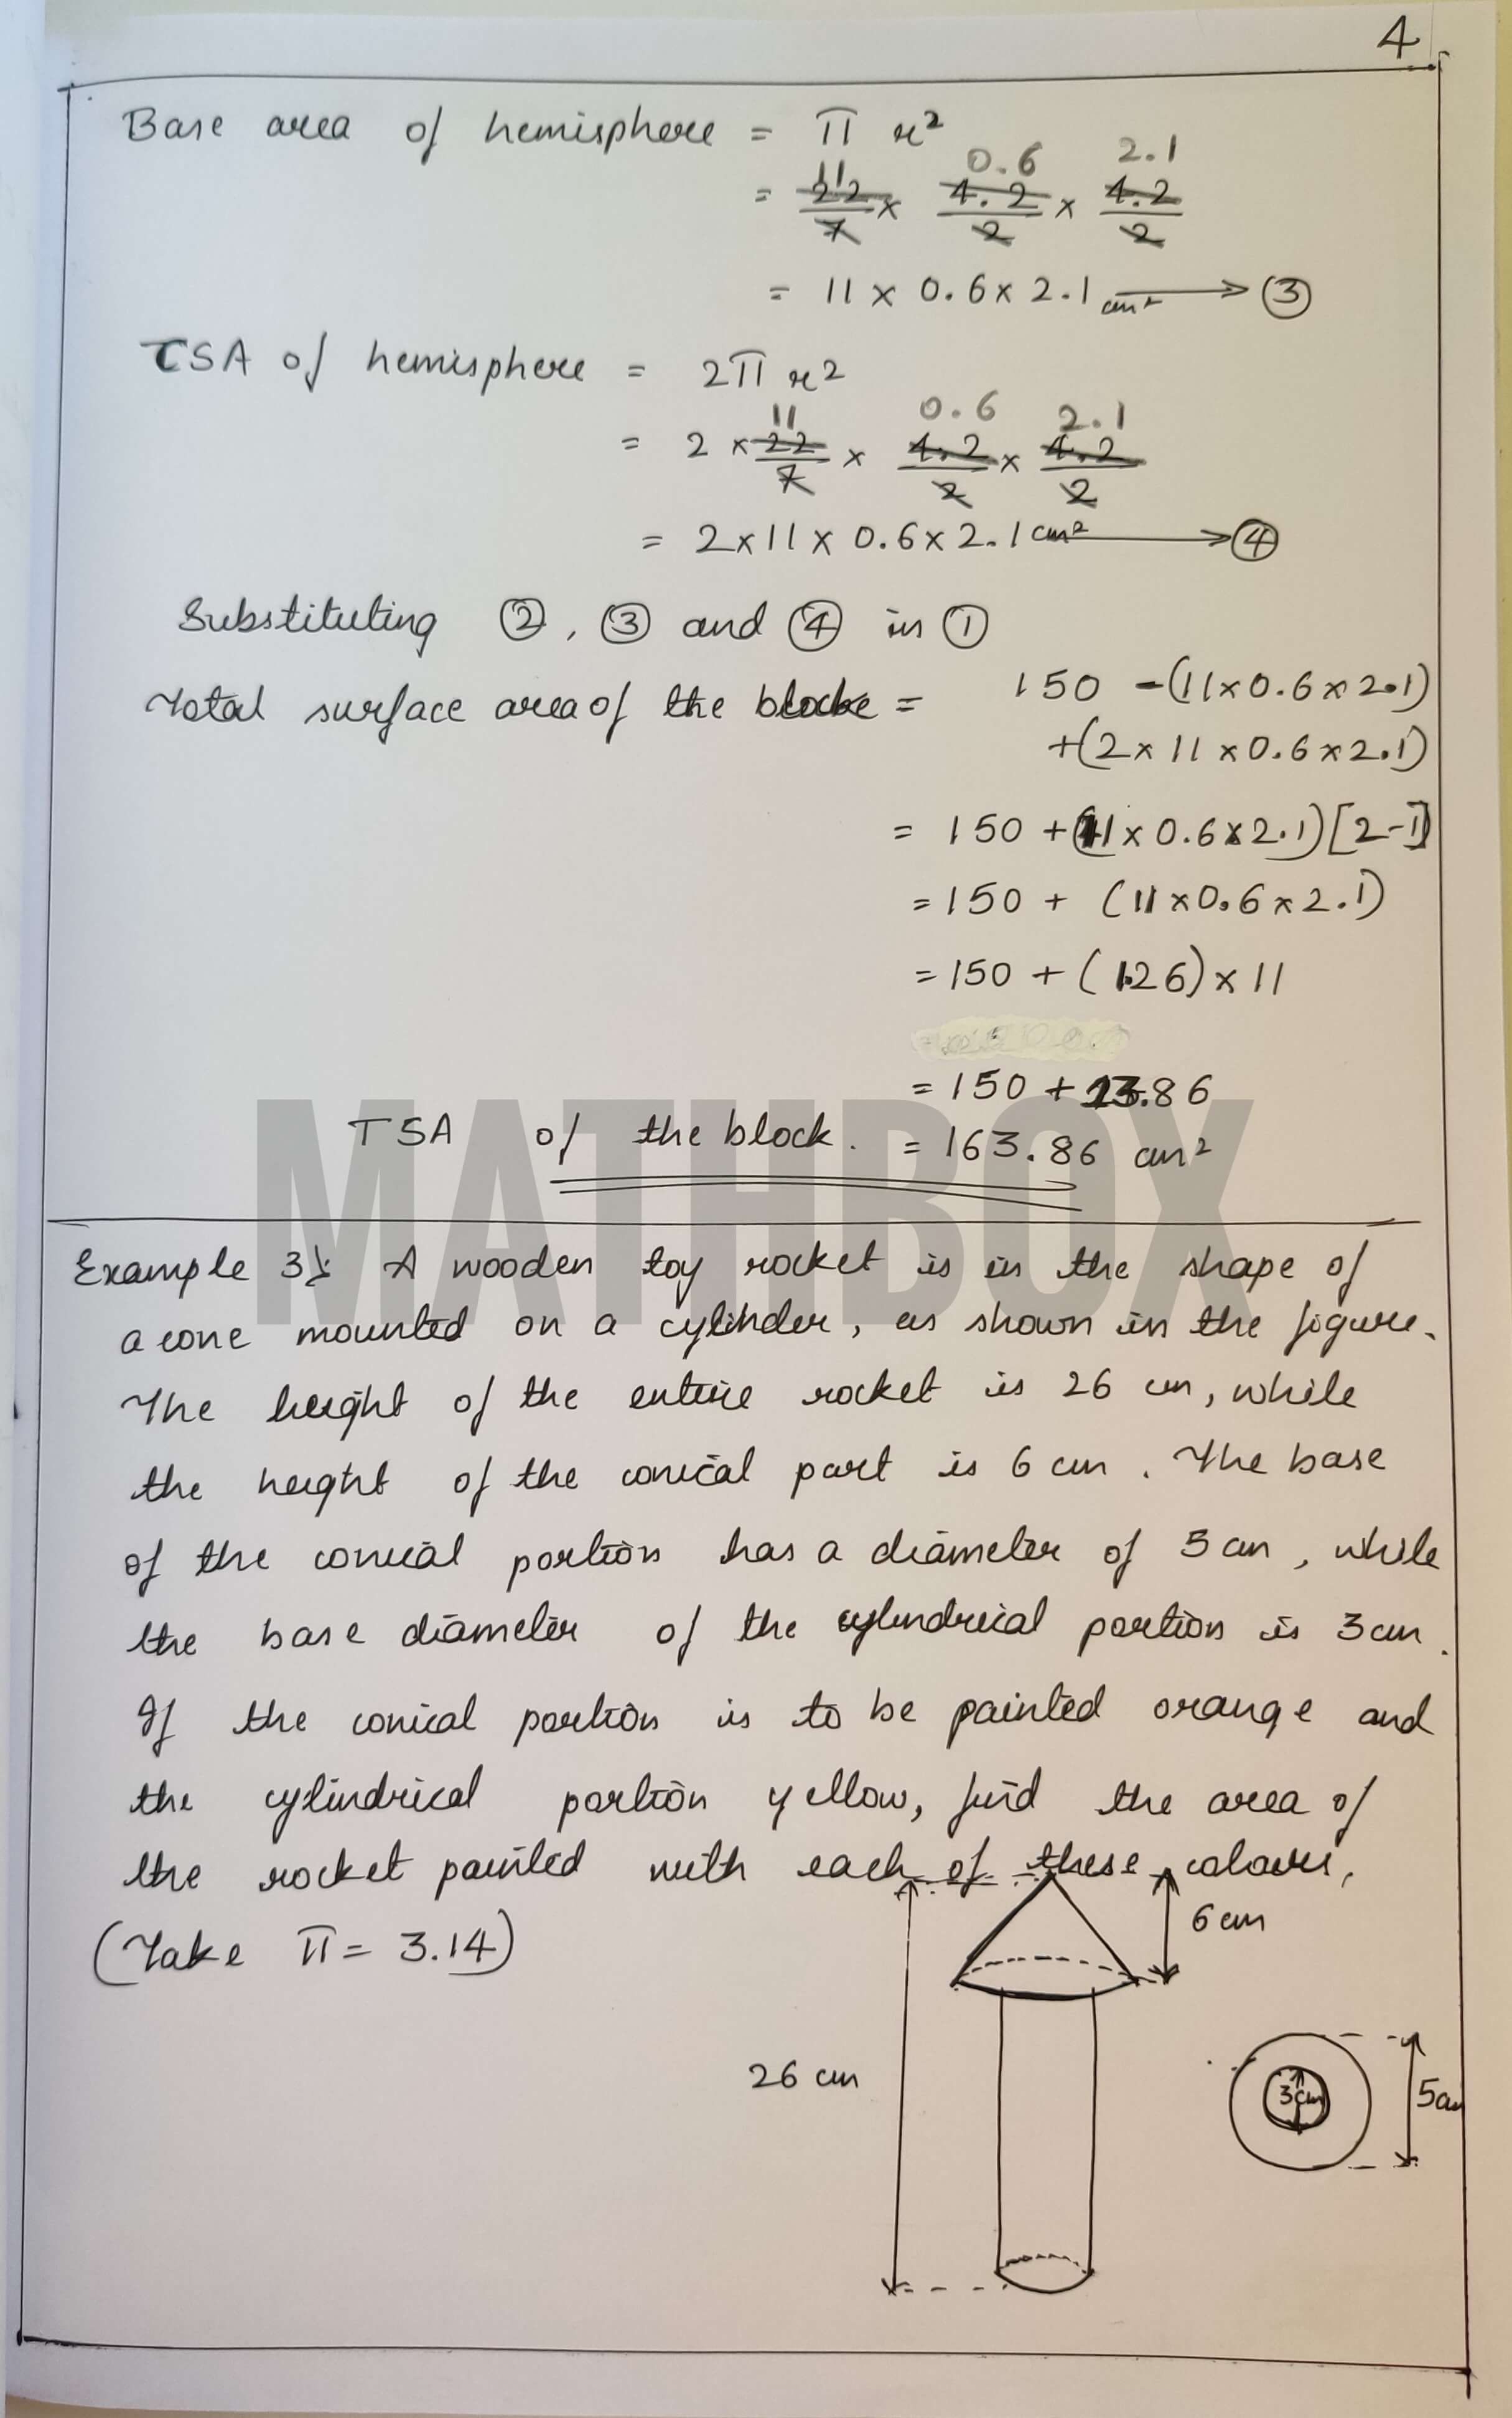 4
Base area of hemisphere = π r²
= 22/7 × 4.2/2 × 4.2/2
11 0.6 2.1
= 11 × 0.6 × 2.1 cm² → ③
CSA of hemisphere = 2π r²
= 2 × 22/7 × 4.2/2 × 4.2/2
11 0.6 2.1
= 2 × 11 × 0.6 × 2.1 cm² → ④
Substituting ②, ③ and ④ in ①
Total surface area of the block = 150 - (11 × 0.6 × 2.1)
+ (2 × 11 × 0.6 × 2.1)
= 150 + (11 × 0.6 × 2.1) [2-1]
= 150 + (11 × 0.6 × 2.1)
= 150 + (1.26) × 11
= 150 + 13.86
TSA of the block. = 163.86 cm²
MATHBOX
Example 3: A wooden toy rocket is in the shape of
a cone mounted on a cylinder, as shown in the figure.
The height of the entire rocket is 26 cm, while
the height of the conical part is 6 cm. The base
of the conical portion has a diameter of 5 cm, while
the base diameter of the cylindrical portion is 3 cm.
If the conical portion is to be painted orange and
the cylindrical portion yellow, find the area of
the rocket painted with each of these colours,
(Take π = 3.14)
6 cm
26 cm
3cm
5cm